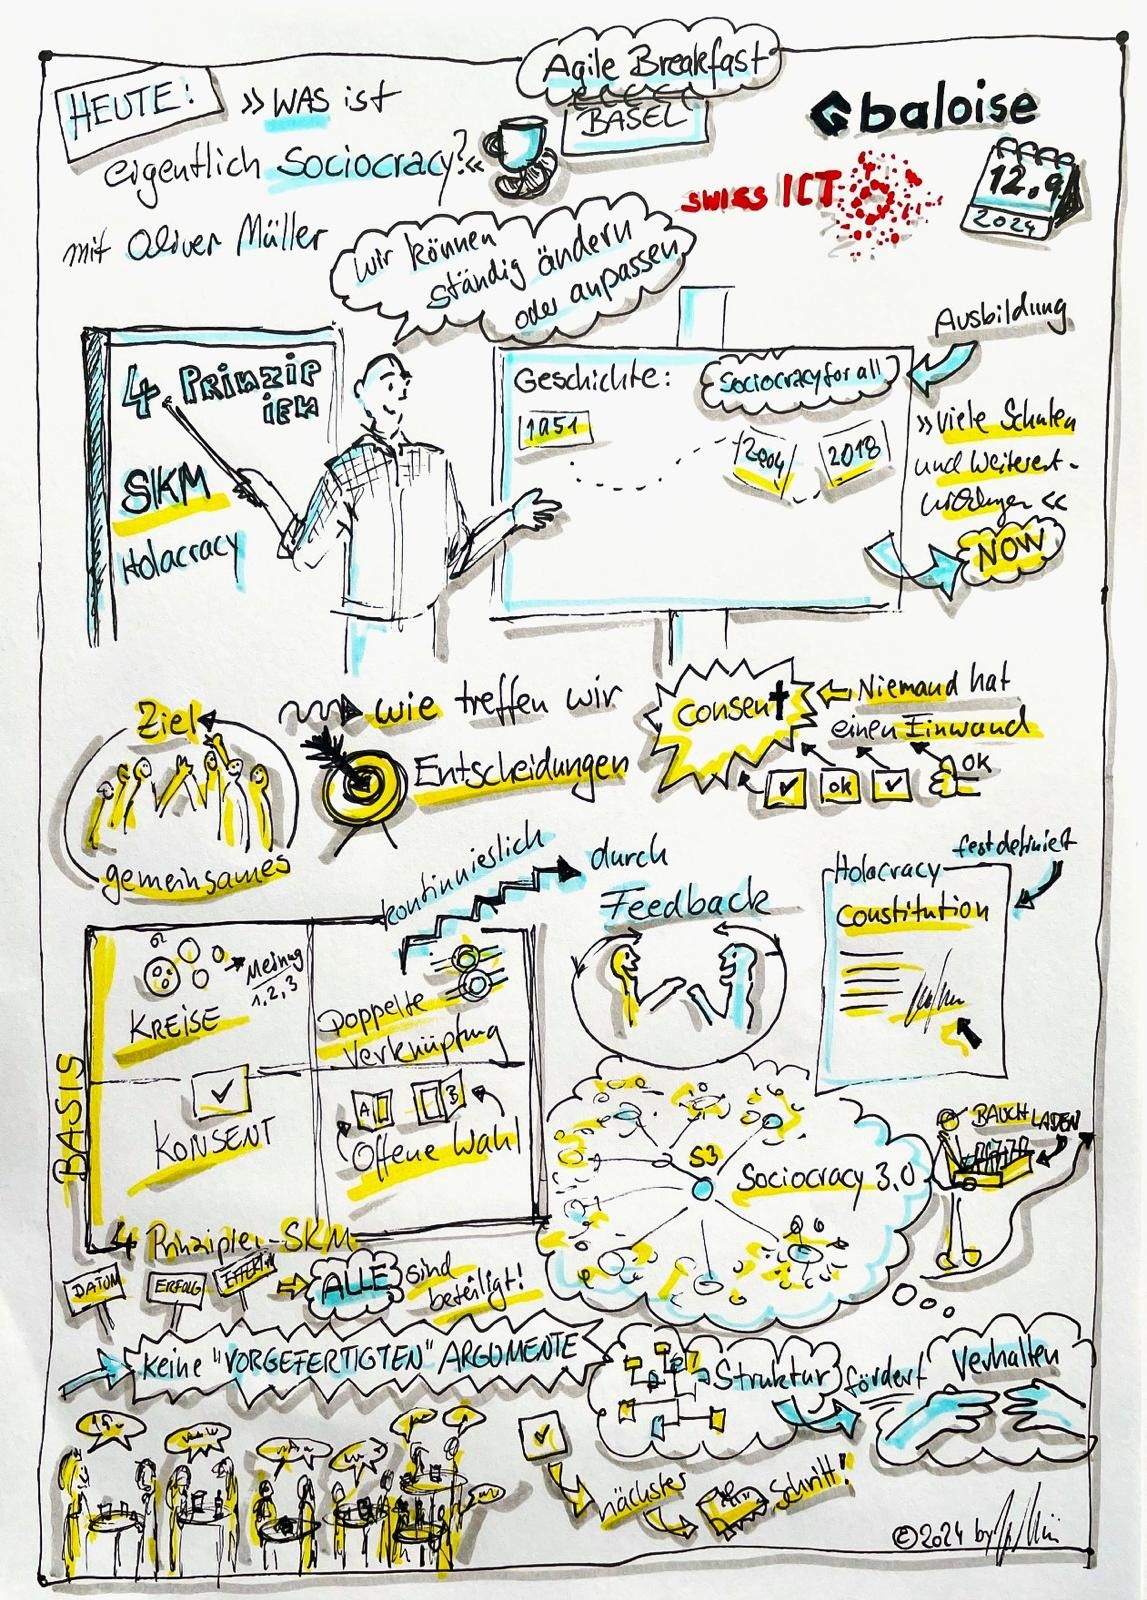 Agile Breakfast
BASEL
HEUTE:
»WAS ist
eigentlich Sociocracy?«
mit Oliver Müller
baloise
swiss ICT
12.9
2024
Wir können
ständig ändern
oder anpassen
4 Prinzip
ien
SKM
Holacracy
Geschichte:
Sociocracy for all
1951
2004
2018
Ausbildung
»Viele Schulen
und Weiterent-
wicklungen«
NOW
Ziel
gemeinsames
wie treffen wir
Entscheidungen
Consent
Niemand hat
einen Einwand
OK
OK
kontinnieslich
durch
Feedback
festdefiniert
Holacracy
Constitution
BASIS
KREISE
Meinug
1,2,3
Doppelte
Verknüpfung
KONSENT
A
B
Offene Wahl
4 Prinzipien-SKM
S3
Sociocracy 3.0
BAUCHLADEN
DATUM
ERFOLG
ALLE sind
beteiligt!
keine "VORGEFERTIGTEN" ARGUMENTE
Struktur fördert Verhalten
nächster
Schritt!
©2024 by